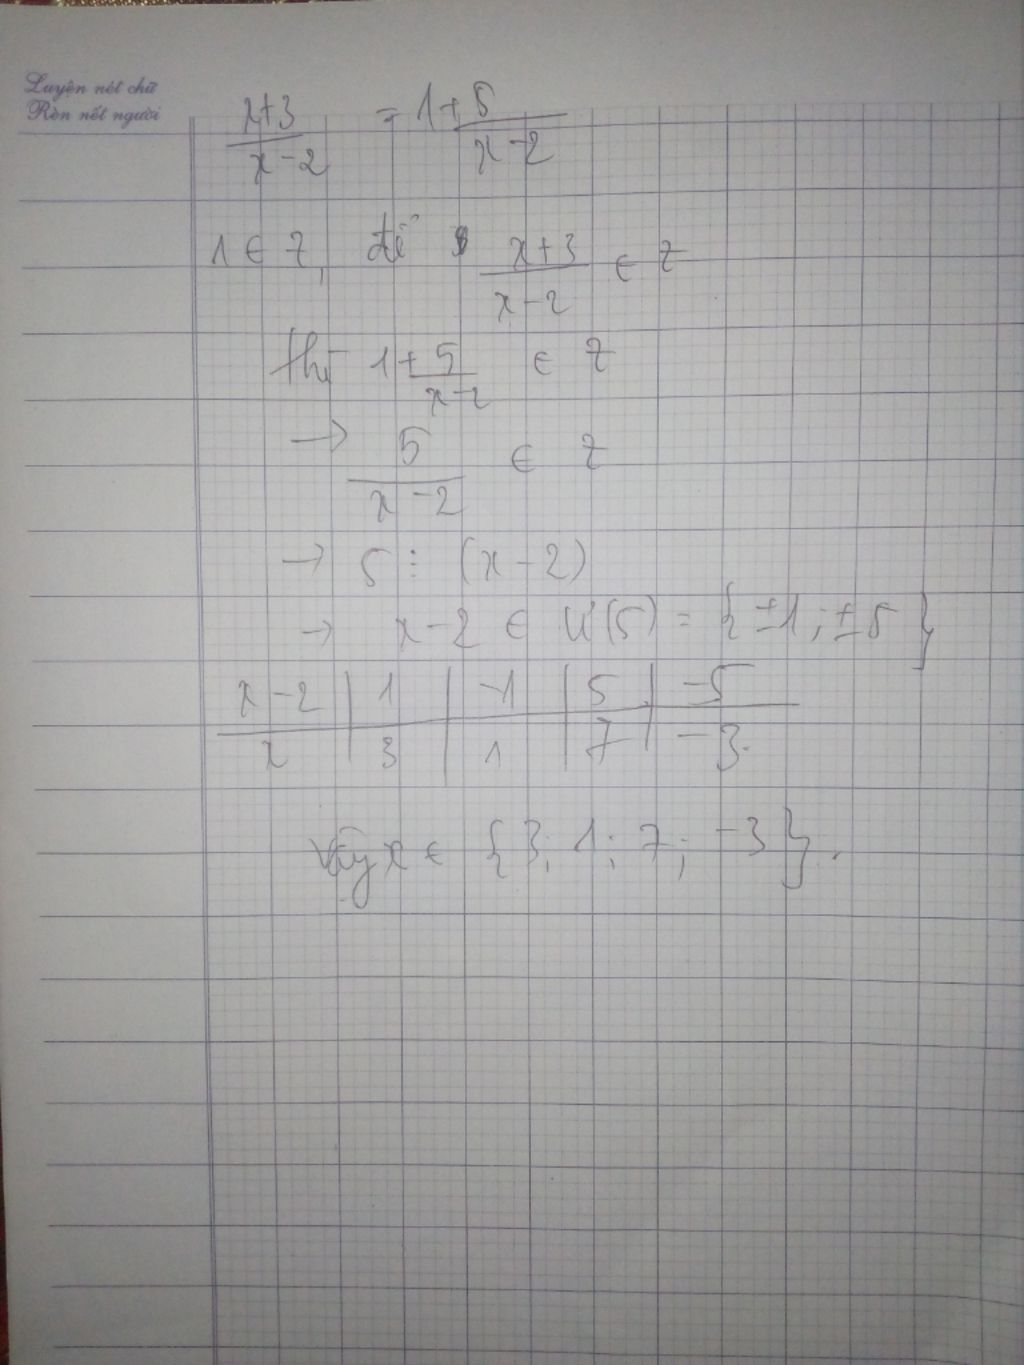 Luyện nét chữ
Rèn nết người
x+3/x-2 = 1+5/x-2
1 ∈ Z, để x+3/x-2 ∈ Z
thì 1+5/x-2 ∈ Z
→ 5/x-2 ∈ Z
→ 5 ⋮ (x-2)
→ x-2 ∈ Ư(5) = {±1; ±5}
x-2 | 1 | -1 | 5 | -5
x | 3 | 1 | 7 | -3
Vậy x ∈ {3; 1; 7; -3}.